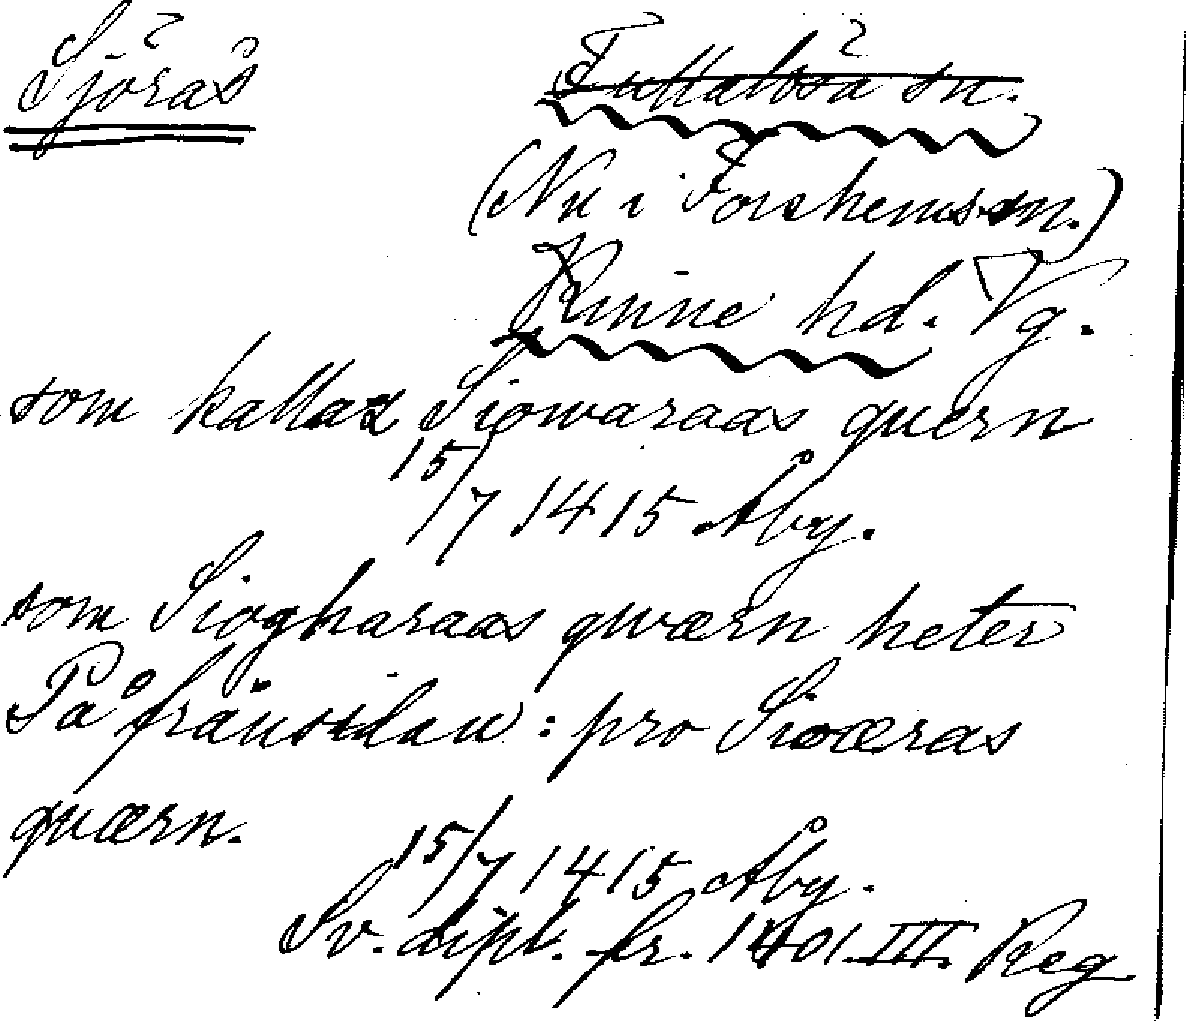 Sjörås Fullälösa sn.
(Nu i Forshems sn.)
Kinne hd. Vg.
som kallas Siowaraas quern
15/7 1415 Åby.
som Siogharaas qwærn heter
På frånsidan: pro Sioæras
quærn.
15/7 1415 Åby.
Sv. dipl. fr. 1401 III. Reg